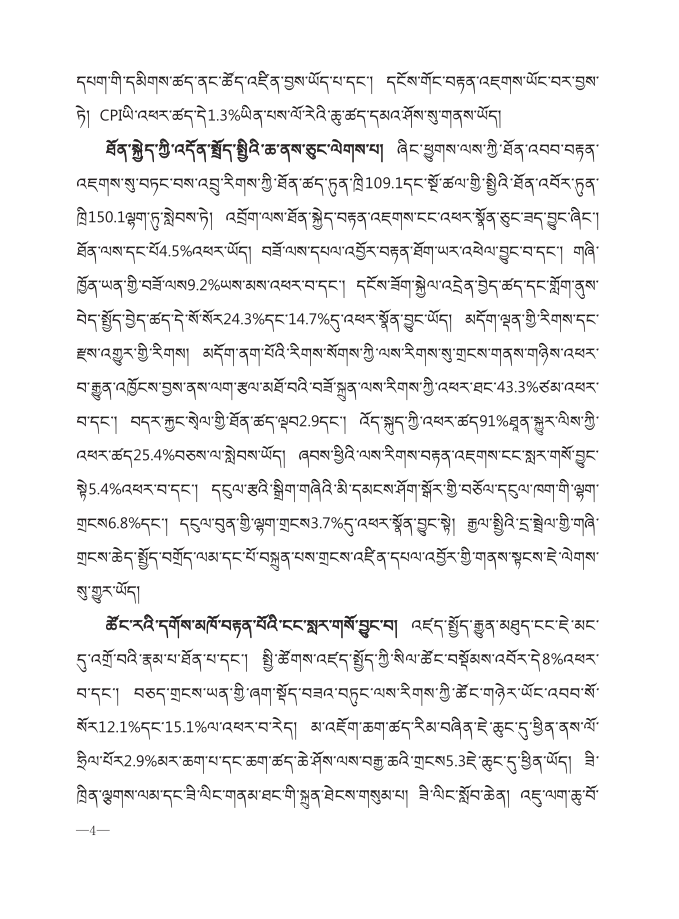 དཔག་གི་དམིགས་ཚད་ནང་ཚོད་འཛིན་བྱས་ཡོད་པ་དང་།  དངོས་གོང་བརྟན་འཇགས་ཡོང་བར་བྱས་
ཏེ།  CPIཡི་འཕར་ཚད་དེ1.3%ཡིན་པས་ལོ་རེའི་ཆུ་ཚད་དམའ་ཤོས་སུ་གནས་ཡོད།
ཐོན་སྐྱེད་ཀྱི་འདོན་སྤྲོད་སྤྱིའི་ཆ་ནས་ཅུང་ལེགས་པ།  ཞིང་ཕྱུགས་ལས་ཀྱི་ཐོན་འབབ་བརྟན་
འཇགས་སུ་བཏང་བས་འབྲུ་རིགས་ཀྱི་ཐོན་ཚད་ཏུན་ཁྲི109.1དང་སྔོ་ཚལ་གྱི་སྤྱིའི་ཐོན་འབོར་ཏུན་
ཁྲི150.1ལྷག་ཏུ་སླེབས་ཏེ།  འབྲོག་ལས་ཐོན་སྐྱེད་བརྟན་འཇགས་ངང་འཕར་སྣོན་ཅུང་ཟད་བྱུང་ཞིང་།
ཐོན་ལས་དང་པོ4.5%འཕར་ཡོད།  བཟོ་ལས་དཔལ་འབྱོར་བརྟན་ཐོག་ཡར་འཕེལ་བྱུང་བ་དང་།  གཞི་
ཁྱོན་ཡན་གྱི་བཟོ་ལས9.2%ཡས་མས་འཕར་བ་དང་།  དངོས་ཟོག་སྐྱེལ་འདྲེན་བྱེད་ཚད་དང་གློག་ནུས་
བེད་སྤྱོད་བྱེད་ཚད་དེ་སོ་སོར24.3%དང་14.7%དུ་འཕར་སྣོན་བྱུང་ཡོད།  མདོག་ལྡན་གྱི་རིགས་དང་
རྫས་འགྱུར་གྱི་རིགས།  མདོག་ནག་པོའི་རིགས་སོགས་ཀྱི་ལས་རིགས་སུ་གྲངས་གནས་གཉིས་འཕར་
བ་རྒྱུན་འཁྱོངས་བྱས་ནས་ལག་རྩལ་མཐོ་བའི་བཟོ་སྐྲུན་ལས་རིགས་ཀྱི་འཕར་ཐང་43.3%ཙམ་འཕར་
བ་དང་།  བདར་རྐྱང་སེལ་གྱི་ཐོན་ཚད་ལྡབ2.9དང་།  འོད་སྐུད་ཀྱི་འཕར་ཚད91%ཐན་སྐྱུར་ལིས་ཀྱི་
འཕར་ཚད25.4%བཅས་ལ་སླེབས་ཡོད།  ཞབས་ཕྱིའི་ལས་རིགས་བརྟན་འཇགས་ངང་སླར་གསོ་བྱུང་
སྟེ5.4%འཕར་བ་དང་།  དངུལ་རྩའི་སྒྲིག་གཞིའི་མི་དམངས་ཤོག་སྒོར་གྱི་བཅོལ་དངུལ་ཁག་གི་ལྷག་
གྲངས6.8%དང་།  དངུལ་བུན་གྱི་ལྷག་གྲངས3.7%དུ་འཕར་སྣོན་བྱུང་སྟེ།  རྒྱལ་སྤྱིའི་དྲ་སྦྲེལ་གྱི་གཞི་
གྲངས་ཆེད་སྤྱོད་བགྲོད་ལམ་དང་པོ་བསྐྲུན་པས་གྲངས་འཛིན་དཔལ་འབྱོར་གྱི་གནས་སྟངས་ཇེ་ལེགས་
སུ་གྱུར་ཡོད།
ཚོང་རའི་དགོས་མཁོ་བརྟན་པོའི་ངང་སླར་གསོ་བྱུང་བ།  འཛད་སྤྱོད་རྒྱུན་མཐུད་ངང་ཇེ་མང་
དུ་འགྲོ་བའི་རྣམ་པ་ཐོན་པ་དང་།  སྤྱི་ཚོགས་འཛད་སྤྱོད་ཀྱི་སིལ་ཚོང་བསྡོམས་འབོར་དེ8%འཕར་
བ་དང་།  བཅད་གྲངས་ཡན་གྱི་ཞག་སྡོད་བཟའ་བཏུང་ལས་རིགས་ཀྱི་ཚོང་གཉེར་ཡོང་འབབ་སོ་
སོར12.1%དང་15.1%ལ་འཕར་བ་རེད།  མ་འཇོག་ཆག་ཚད་རིམ་བཞིན་ཇེ་ཆུང་དུ་ཕྱིན་ནས་ལོ་
ཧྲིལ་པོར2.9%མར་ཆག་པ་དང་ཆག་ཚད་ཆེ་ཤོས་ལས་བརྒྱ་ཆའི་གྲངས5.3ཇེ་ཆུང་དུ་ཕྱིན་ཡོད།  ཟི་
ཁྲིན་ལྕགས་ལམ་དང་ཟི་ལིང་གནམ་ཐང་གི་སྐྲུན་ཐེངས་གསུམ་པ།  ཟི་ལིང་སློབ་ཆེན།  འཇུ་ལག་ཆུ་བོ་
—4—